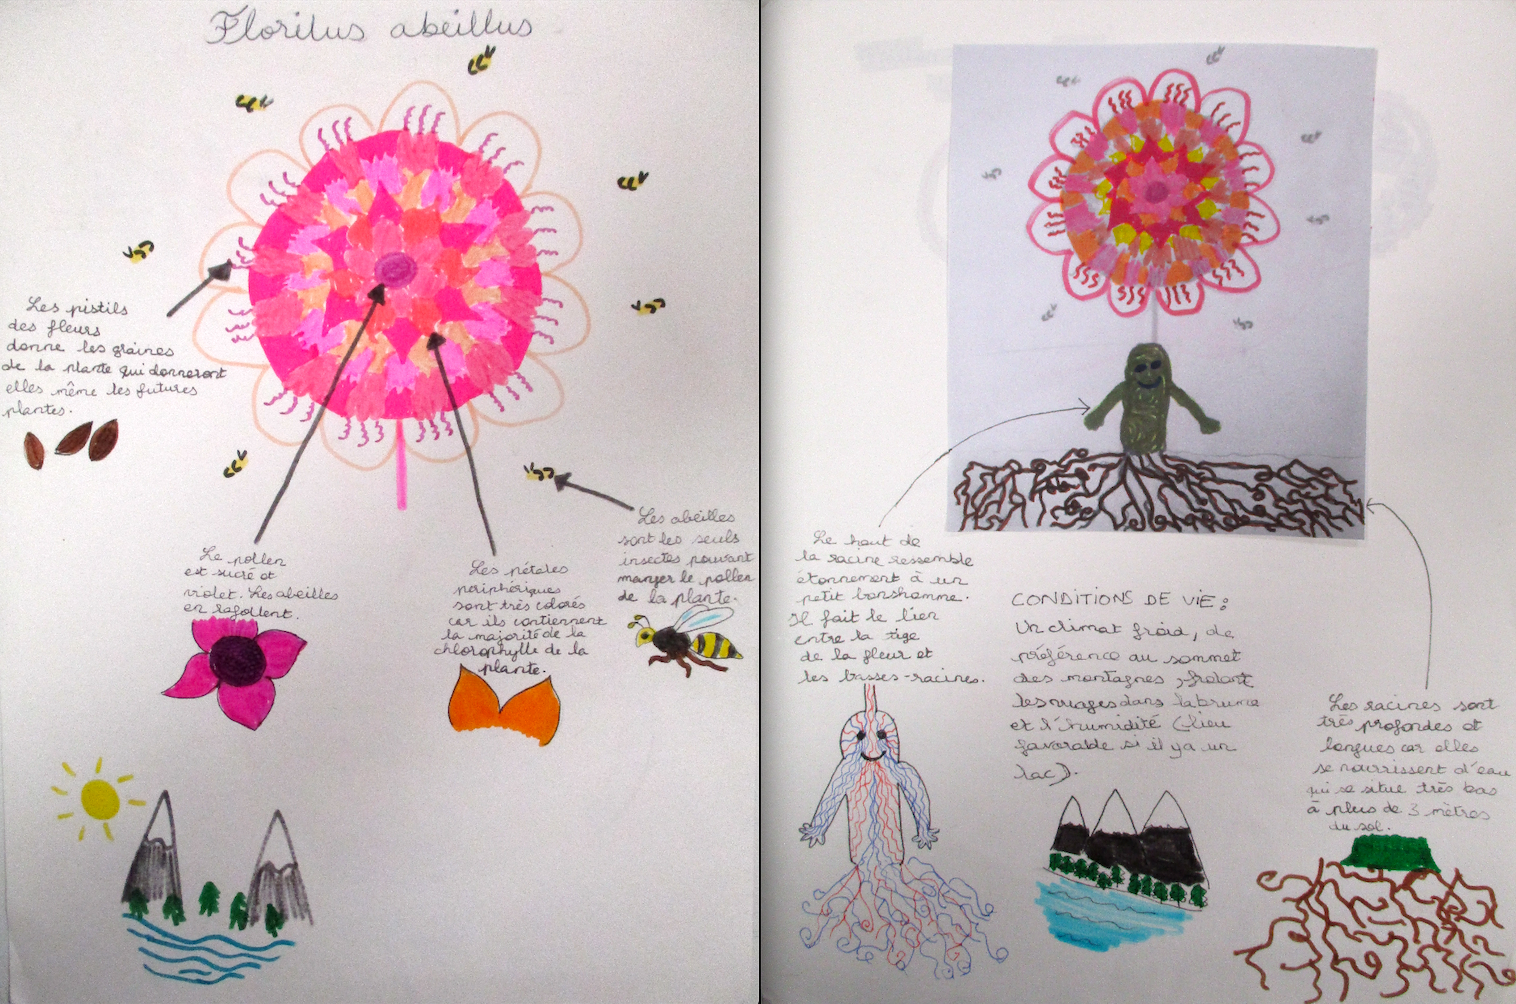 Florilus abeillus
Les pistils
des fleurs
donne les graines
de la plante qui donneront
elles même les futures
plantes.
Le pollen
est sucré et
violet. Les abeilles
en rafollent.
Les pétales
périphériques
sont très colorés
car ils contiennent
la majorité de la
chlorophylle de la
plante.
Les abeilles
sont les seuls
insectes pouvant
manger le pollen
de la plante.
Le haut de
la racine ressemble
étonnement à un
petit bonshomme.
Il fait le lien
entre la tige
de la fleur et
les basses-racines.
CONDITIONS DE VIE :
Un climat froid, de
préférence au sommet
des montagnes, frolant
les nuages dans la brume
et l'humidité (lieu
favorable si il y a un
lac).
Les racines sont
très profondes et
longues car elles
se nourrissent d'eau
qui se situe très bas
à plus de 3 mètres
du sol.